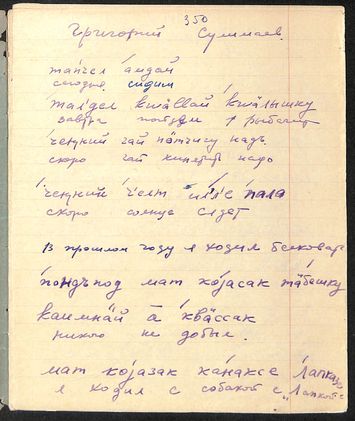 350
Григорий Сулимаев.
та́пчел а́мдай
сегодня сидим
тал'дел ква́ллай ква́лышку
завтра пойдем рыбачить
че́ӈкий чай по́тчигу надъ
скоро чай кипятить надо
че́ӈкий че́лт и́л'е пала
скоро солнце сядет
в прошлом году я ходил белковать
по́ндъпод мат ко́јасак та́бешку
каимна́й а̄ ква́ссак
никого не добыл.
мат ко́јазак ка́наксе Лапказе
я ходил с собакой с „Лапкой“